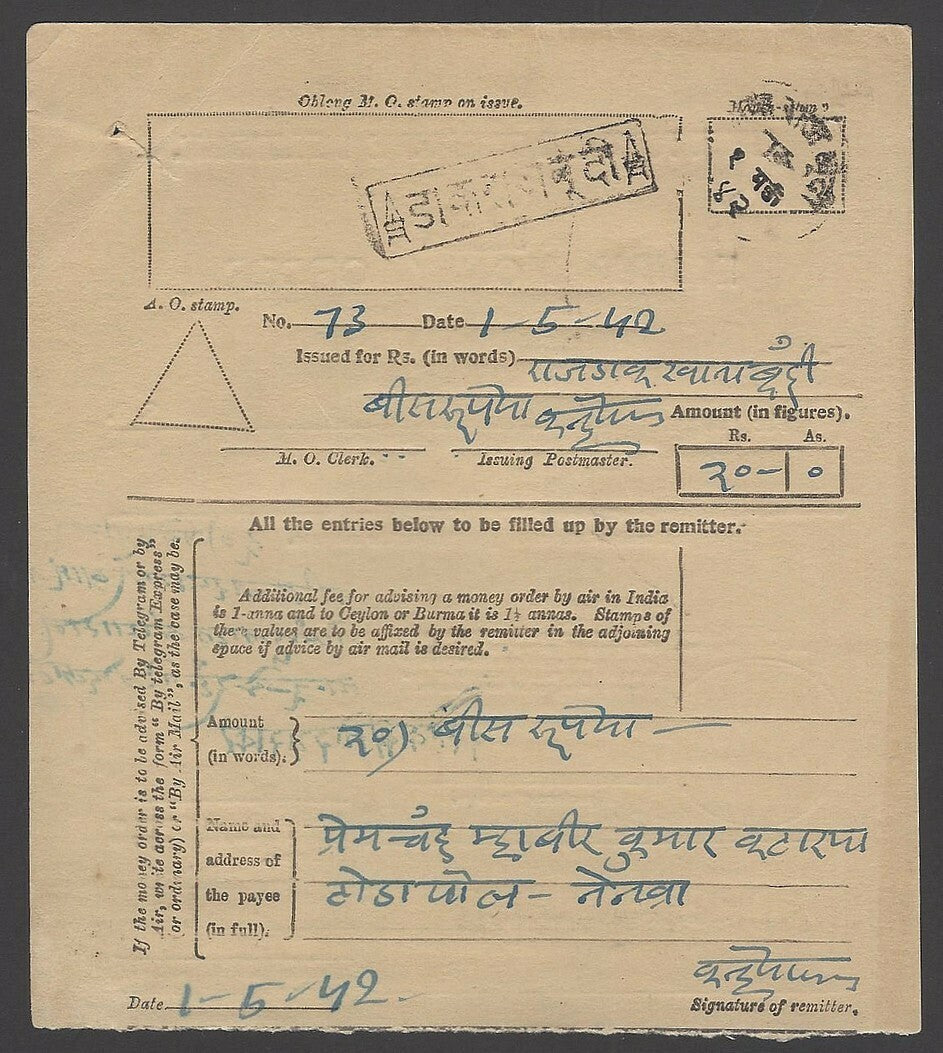 Oblong M. O. stamp on issue.
डाकखाना बूंदी
A. O. stamp.
No. 73 Date 1-5-42
Issued for Rs. (in words) राजडाकखाना बुंदी
बीस रूपया Amount (in figures).
Rs. As.
M. O. Clerk. Issuing Postmaster.
२०-|०
All the entries below to be filled up by the remitter.
If the money order is to be advised By Telegram or by
Air, write across the form "By telegram Express"
or ordinary) or "By Air Mail", as the case may be.
Additional fee for advising a money order by air in India
is 1-anna and to Ceylon or Burma it is 1½ annas. Stamps of
there values are to be affixed by the remitter in the adjoining
space if advice by air mail is desired.
Amount
(in words). २०) बीस रूपया
Name and
address of
the payee
(in full).
प्रेमचंद म्हावीर कुमार कटारया
टोडा पोल - नेनवा
Date 1-5-42.
Signature of remitter.